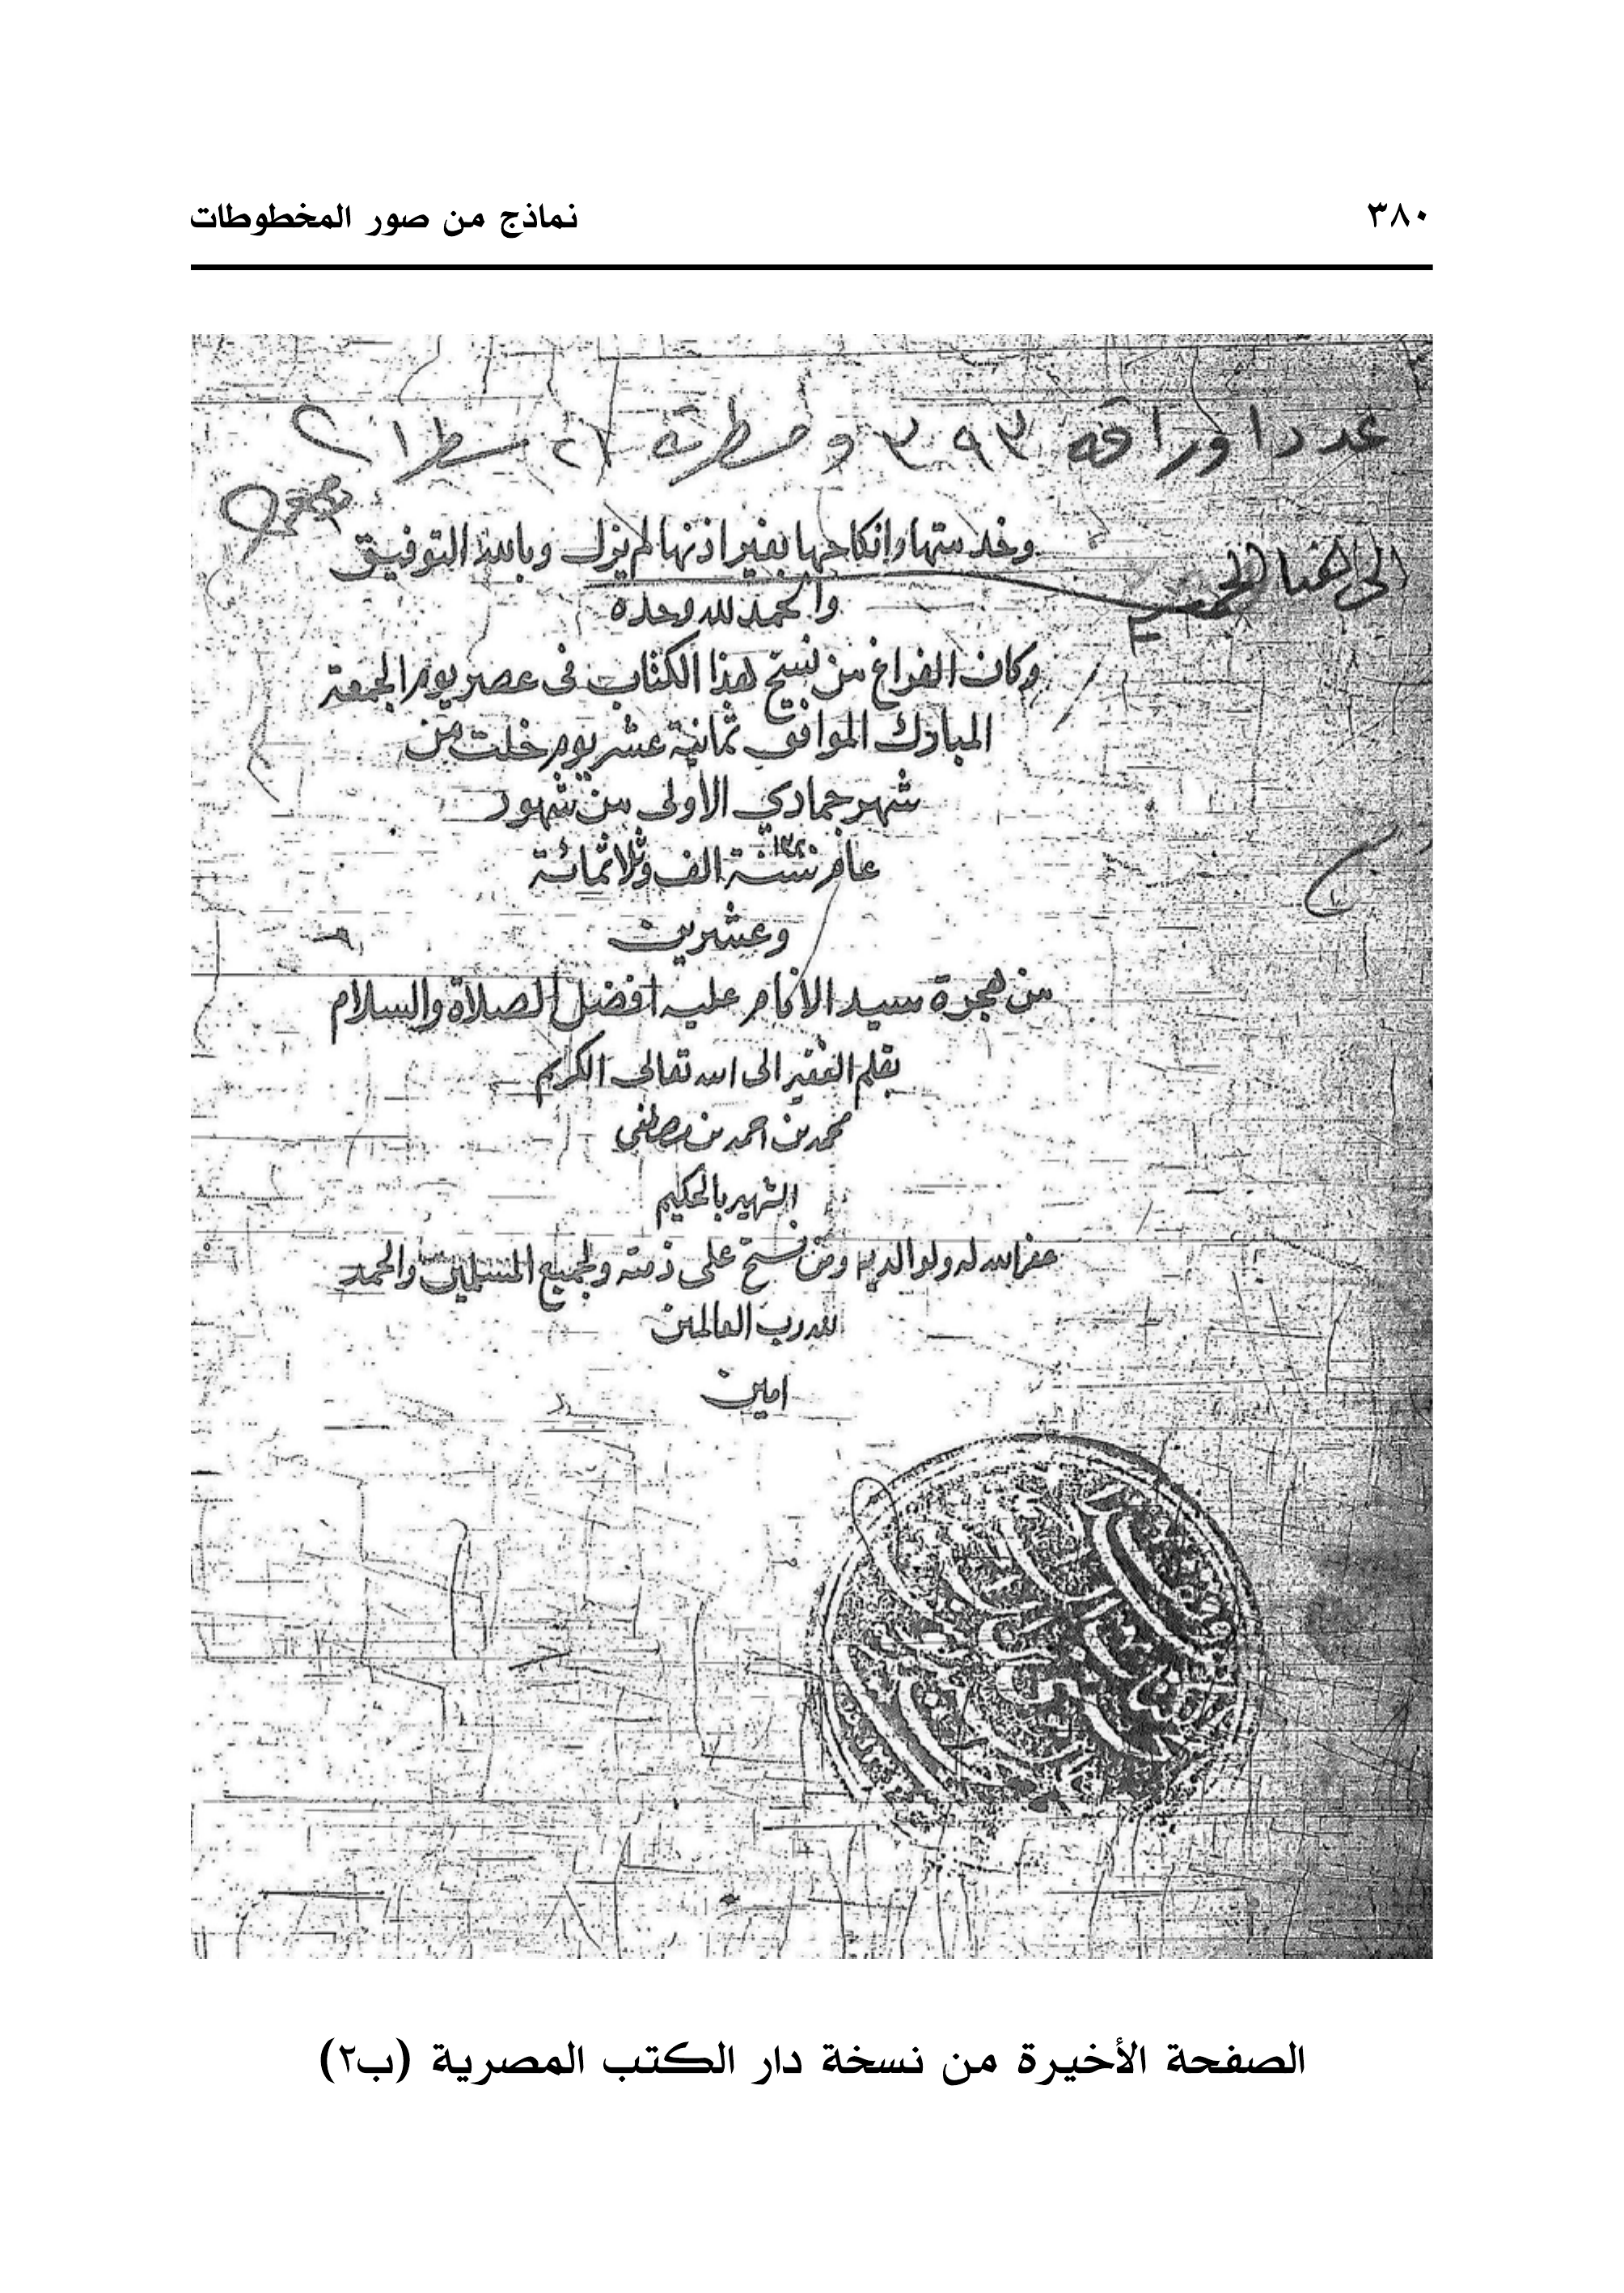 ٣٨٠
نماذج من صور المخطوطات
عدد اوراقه ٣٩٣ ومسطرته ٢١ سطرا
وخدمتها وانكاحها بغير اذنها لم يزل وبالله التوفيق
والحمد لله وحده
وكان الفراغ من نسخ هذا الكتاب فى عصر يوم الجمعة
المبارك الموافق ثمانية عشر يوم خلت من
شهر جمادي الاولى من شهور
عام سنة الف وثلاثمائة
وعشرين
من هجرة سيد الانام عليه افضل الصلاة والسلام
بقلم الفقير الى الله تعالى الكريم
محمد بن احمد بن مصطفى
الشهير بالحكيم
غفر الله له ولوالديه ومن نسخ على ذمته ولجميع المسلمين والحمد
لله رب العالمين
امين
الصفحة الأخيرة من نسخة دار الكتب المصرية (ب٢)